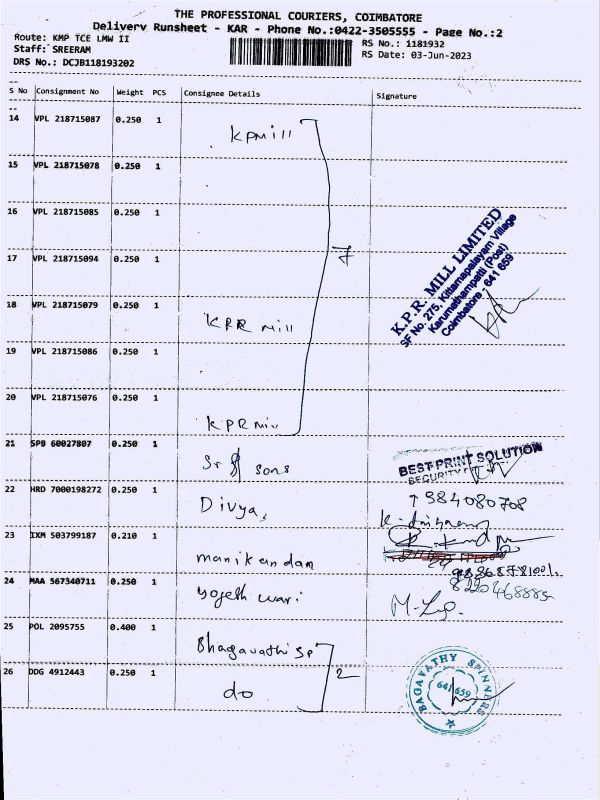 THE PROFESSIONAL COURIERS, COIMBATORE
Delivery Runsheet - KAR - Phone No.:0422-3505555 - Page No.:2
Route: KMP TCE LMW II
RS No.: 1181932
Staff: SREERAM
RS Date: 03-Jun-2023
DRS No.: DCJB118193202
S No Consignment No Weight PCS Consignee Details Signature
14 VPL 218715087 0.250 1 KPMill
15 VPL 218715078 0.250 1
16 VPL 218715085 0.250 1
17 VPL 218715094 0.250 1
7
K.P.R. MILL LIMITED
SF No. 275, Kittampalayam Village
Karumathampatti (Post)
Coimbatore - 641 659
18 VPL 218715079 0.250 1 KPR Mill
19 VPL 218715086 0.250 1
20 VPL 218715076 0.250 1 KPR Mill
21 SPB 60027807 0.250 1 sons
BEST PRINT SOLUTION
SECURITY
22 HRD 7000198272 0.250 1 Divya
23 IXM 503799187 0.210 1 manikandan
24 MAA 567340711 0.250 1 yogeshwari
8220468885
25 POL 2095755 0.400 1 Bhagavathi SP
26 DDG 4912443 0.250 1 do
2
BAGAVATHY SPINNERS
641 659